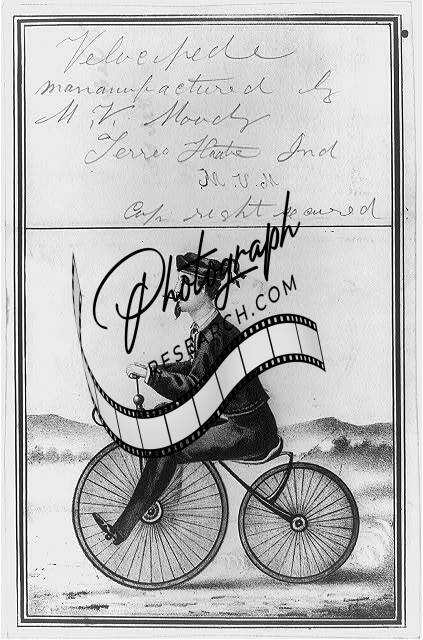 Velocipede
manamufactured by
M. V. Moody
Terre Haute Ind
M. V. M.
Cop right secured
Photograph
RESEARCH.COM